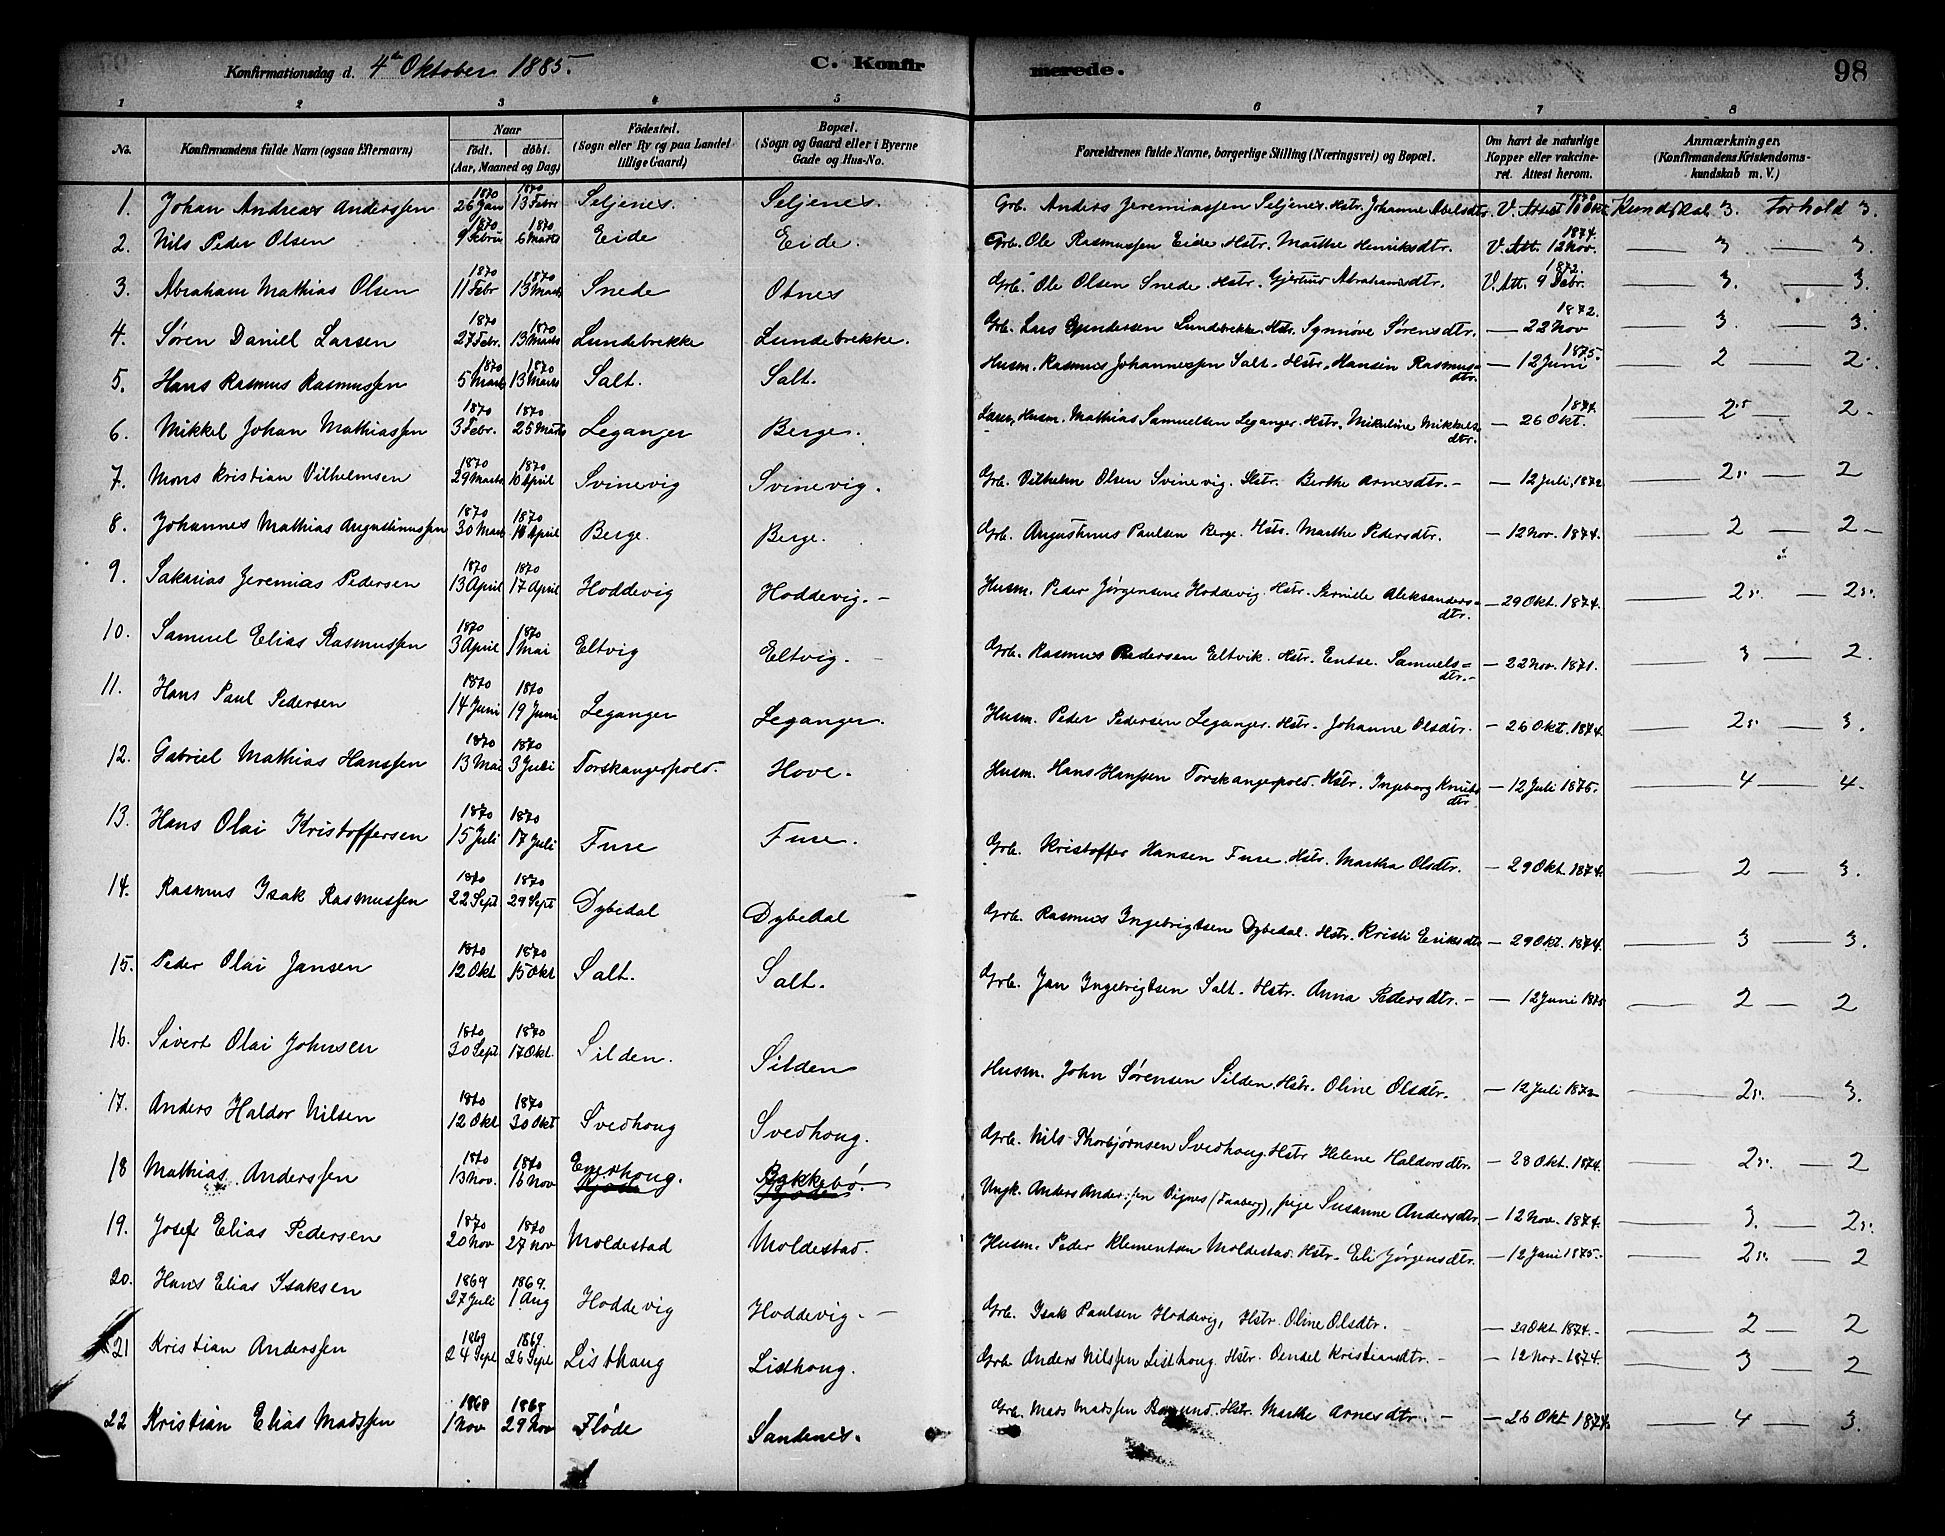 Konfirmationsdag d. 4de Oktober 1885. C. Konfirmerede. 98
1 2 3 4 5 6 7 8
No. Konfirmandens fulde Navn (ogsaa Efternavn) Naar födt. döbt. (Aar, Maaned og Dag) Födested. (Sogn eller By og paa Landet tillige Gaard) Bopæl. (Sogn og Gaard eller i Byerne Gade og Hus-No. Forældrenes fulde Navne, borgerlige Stilling (Næringsvei) og Bopæl. Om havt de naturlige Kopper eller vakcineret. Attest herom. Anmærkninger. (Konfirmandens Kristendomskundskab m. V.)
1. Johan Andreas Anderssen 1870 26 Jan 1870 13 Febr Seljenes. Seljenes. Grb. Anders Jeremiassen Seljenes. Hstr. Johanne Abelsdtr. V. Attest 10 Okt. Kundskab 3. Forhold 3.
2. Nils Peder Olsen 1870 9 Febru 1870 6 Marts Eide Eide. Grb. Ole Rasmussen Eide Hstr. Marthe Henriksdtr. V. Att. 12 Nov. 1874. — 3 — 3.
3. Abraham Mathias Olsen 1870 11 Febr 1870 13 Marts Snede Otnes Grb. Ole Olsen Snede. Hstr. Gjertrud Abrahamsdtr. V. Att. 9 Febr. 1872. — 3. — 3.
4. Søren Daniel Larsen 1870 27 Febr. 1870 13 Marts Lundebrekke Lundebrekke. Grb. Lars Gundersen Lundebrekke Hstr. Synnøve Sørensdtr. — 22 Nov 1872. — 3. — 3.
5. Hans Rasmus Rasmussen 1870 5 Marts 1870 13 Marts Salt. Salt. Husm. Rasmus Johannessen Salt. Hstr. Hansin Rasmusdtr. — 12 Juni 1875. — 2 — 2.
6. Mikkel Johan Mathiassen 1870 3 Febr. 1870 25 Marts Leganger Berge. Husm. Mathias Samuelsen Leganger. Hstr. Mikeline Mikkelsdtr. — 26 Okt. 1874. — 2.5 — 2.
7. Mons Kristian Vilhelmsen 1870 29 Marts 1870 10 April Svinevig Svinevig. Grb. Vilhelm Olsen Svinevig. Hstr. Berthe Arnesdtr. — — 12 Juli, 1872 — 2.5. — 2
8. Johannes Mathias Augustinussen 1870 30 Marts 1870 10 April Berge. Berge. Grb. Augustinus Paulsen Berge. Hstr. Marthe Pedersdtr. — 12 Nov. 1874. — 2 — 2 —
9. Sakarias Jeremias Pedersen 1870 13 April 1870 17 April Hoddevig Hoddevig. — Husm. Peder Jørgensen Hoddevig. Hstr. Pernille Aleksandersdtr. — 29 Okt. 1874. — 2.5. — 2.5.
10. Samuel Elias Rasmussen 1870 3 April 1870 1 Mai Eltvig Eltvig. — Grb. Rasmus Pedersen Eltvik. Hstr. Entse. Samuelsdtr. — 22 Nov. 1871. — 3 — 2.
11. Hans Paul Pedersen 1870 14 Juni 1870 19 Juni Leganger Leganger. Husm. Peder Pedersen Leganger. Hstr. Johanne Olsdtr. — 26 Okt. 1874. — 2.5. — 3.
12. Gabriel Mathias Hanssen 1870 13 Mai 1870 3 Juli Torskangerpold. Hove. Husm. Hans Hanssen Torskangerpold. Hstr. Ingeborg Knutsdtr. — 12 Juli 1875. — 4 — 4.
13. Hans Olai Kristoffersen 1870 15 Juli 1870 17 Juli Fure Fure. Grb. Kristoffer Hansen Fure. Hstr. Martha Olsdtr. — 29 Okt. 1874. — 2 — 3.
14. Rasmus Isak Rasmussen 1870 22 Sept 1870 29 Sept Dybedal Dybedal Grb. Rasmus Ingebrigtsen Dybedal. Hstr. Kristi Eriksdtr — 29 Okt. 1874. — 3 — 3.
15. Peder Olai Jansen 1870 12 Okt 1870 15 Okt Salt. Salt. Grb. Jan Ingebrigtsen Salt. Hstr. Anna Pedersdtr. — — 12 Juni 1875 — 2 — 2
16. Sivert Olai Johnsen 1870 30 Sept 1870 17 Okt. Silden. Silden Husm. John Sørensen Silden, Hstr. Oline Olsdtr. — 12 Juli 1872 — 2.5. — 3.
17. Anders Haldor Nilsen 1870 12 Okt 1870 30 Okt Svedhoug Svedhoug. Grb. Nils Thorbjørnsen Svedhoug. Hstr Helene Haldorsdtr. — 28 Okt. 1874. — 2.5. — 2
18 Mathias Anderssen 1870 13 Nov. 1870 16 Nov Bykkebø. Ungk. Anders Anderssen Vignes (Faaberg), pige Susanne Andersdtr — 12 Nov. 1874. — 3. — 2.5.
19. Josef Elias Pedersen 1870 20 Nov 1870 27 Nov Moldestad Moldestad. Husm. Peder Klementsen Moldestad. Hstr. Eli Jørgensdtr. — 12 Juni 1875. — 2.5. — 2
20. Hans Elias Isaksen 1869 27 Juli 1869. 1 Aug Hoddevig Hoddevig. — Grb. Isak Paulsen Hoddevig, Hstr. Oline Olsdtr. — 29 Okt. 1874. — 2 — 2
21 Kristian Anderssen 1869 24 Sept 1869 26 Sept Listhoug Listhoug. Grb. Anders Nilssen Listhoug. Hstr. Kristiansdtr. — — 12 Nov. 1874. — 3 — 2
22 Kristian Elias Madssen 1868 1 Nov 1868 29 Nov Fløde Sandenes. Grb. Mads Madssen Hstr. Marthe Arnesdtr. — — 26 Okt 1874. — 4 — 3.